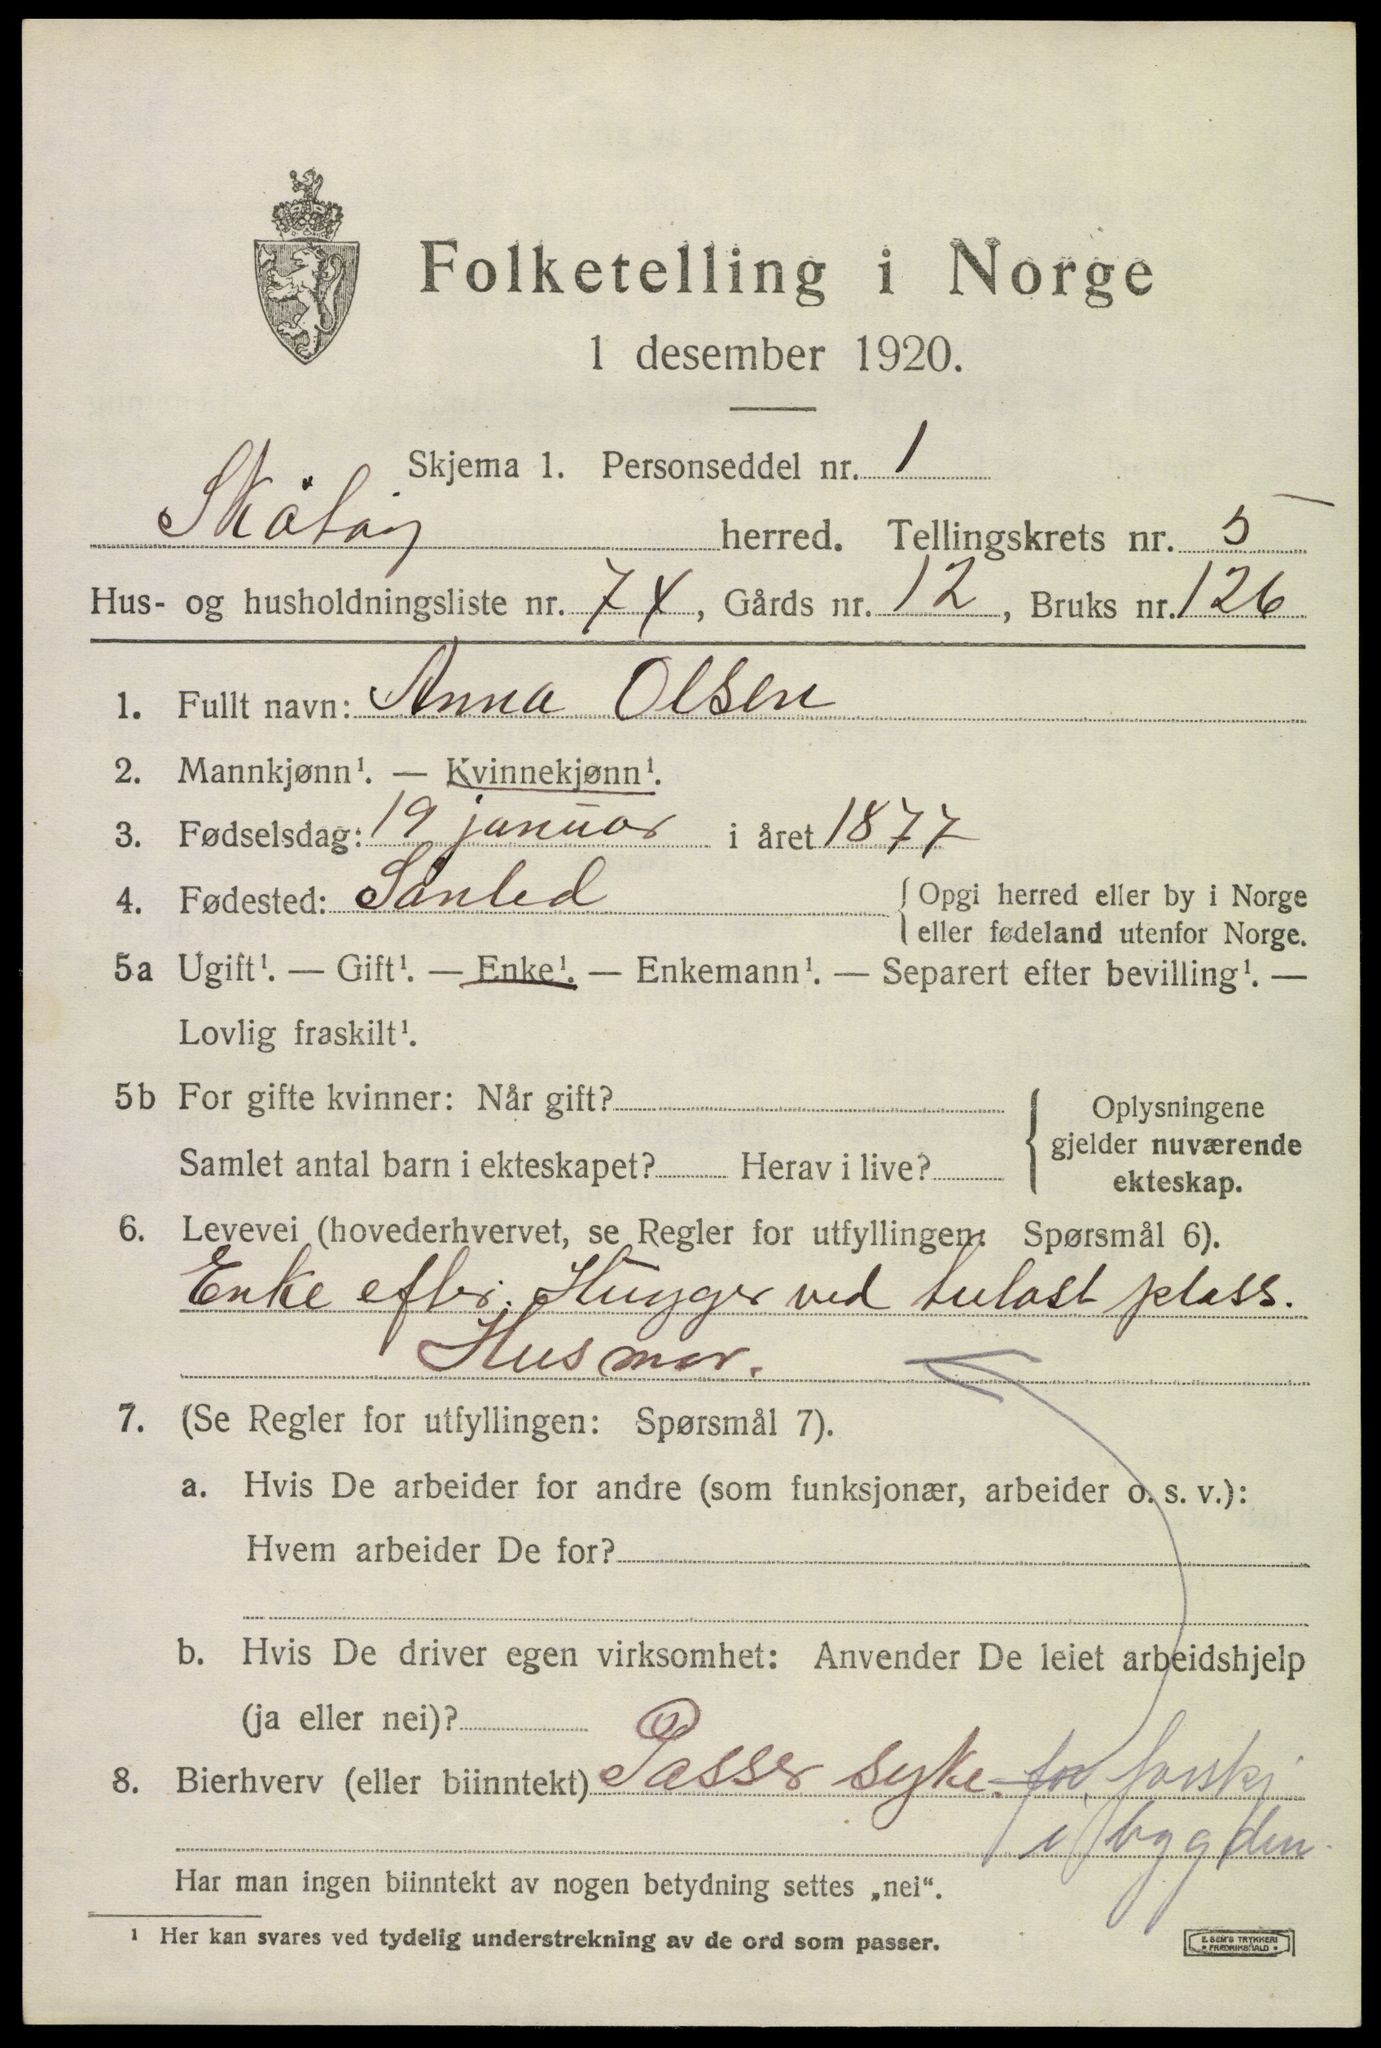 Folketelling i Norge
1 desember 1920.
Skjema 1. Personseddel nr. 1
Skåtøy herred. Tellingskrets nr. 5
Hus- og husholdningsliste nr. 74, Gårds nr. 12, Bruks nr. 126
1. Fullt navn: Anna Olsen
2. Mannkjønn¹. — Kvinnekjønn¹.
3. Fødselsdag: 19 januar i året 1877
4. Fødested: Sønled { Opgi herred eller by i Norge
eller fødeland utenfor Norge.
5a Ugift¹. — Gift¹. — Enke¹. — Enkemann¹. — Separert efter bevilling¹. —
Lovlig fraskilt¹.
5b For gifte kvinner: Når gift?
Samlet antal barn i ekteskapet? Herav i live?
{ Oplysningene
gjelder nuværende
ekteskap.
6. Levevei (hovederhvervet, se Regler for utfyllingen: Spørsmål 6).
Enke efter. Hugger ved plass.
Husmor.
7. (Se Regler for utfyllingen: Spørsmål 7).
a. Hvis De arbeider for andre (som funksjonær, arbeider o. s. v.):
Hvem arbeider De for?
b. Hvis De driver egen virksomhet: Anvender De leiet arbeidshjelp
(ja eller nei)?
8. Bierhverv (eller biinntekt) Passer syke. for forskj
i bygden.
Har man ingen biinntekt av nogen betydning settes „nei".
¹ Her kan svares ved tydelig understrekning av de ord som passer.
E. SEM'S TRYKKERI
FREDRIKSHALD